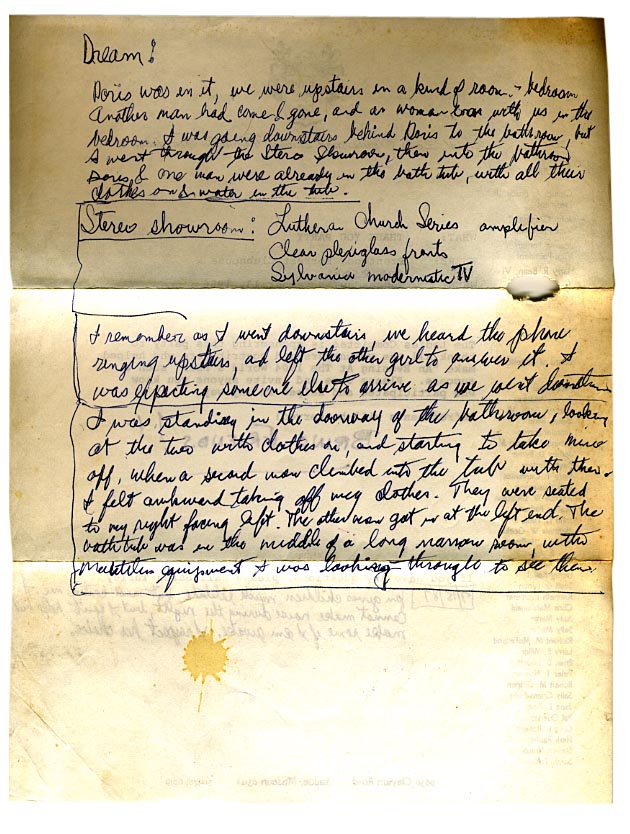 Dream!
Doris was in it, we were upstairs in a kind of room - bedroom
Another man had come & gone, and a woman was with us in the
bedroom. I was going downstairs behind Doris to the bathroom, but
I went through the Stereo Showroom, then into the bathroom
Doris & one man were already in the bath tub, with all their
clothes on & water in the tub.
Stereo showroom: Lutheran Church Series amplifier
Clear plexiglass fronts
Sylvania modernistic TV
I remember as I went downstairs, we heard the phone
ringing upstairs, ad left the other girl to answer it. I
was expecting someone else to arrive as we went
I was standing in the doorway of the bathroom, looking
at the two with clothes on, and starting to take mine
off, when a second man climbed into the tub with them.
I felt awkward taking off my clothes. They were seated
to my right facing left. The other man got in at the left end. The
bathtub was in the middle of a long narrow room, with
equipment I was looking through to see them.